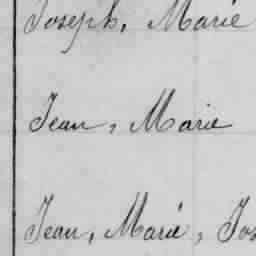 Joseph, Marie
Jean, Marie
Jean, Marie, Jos